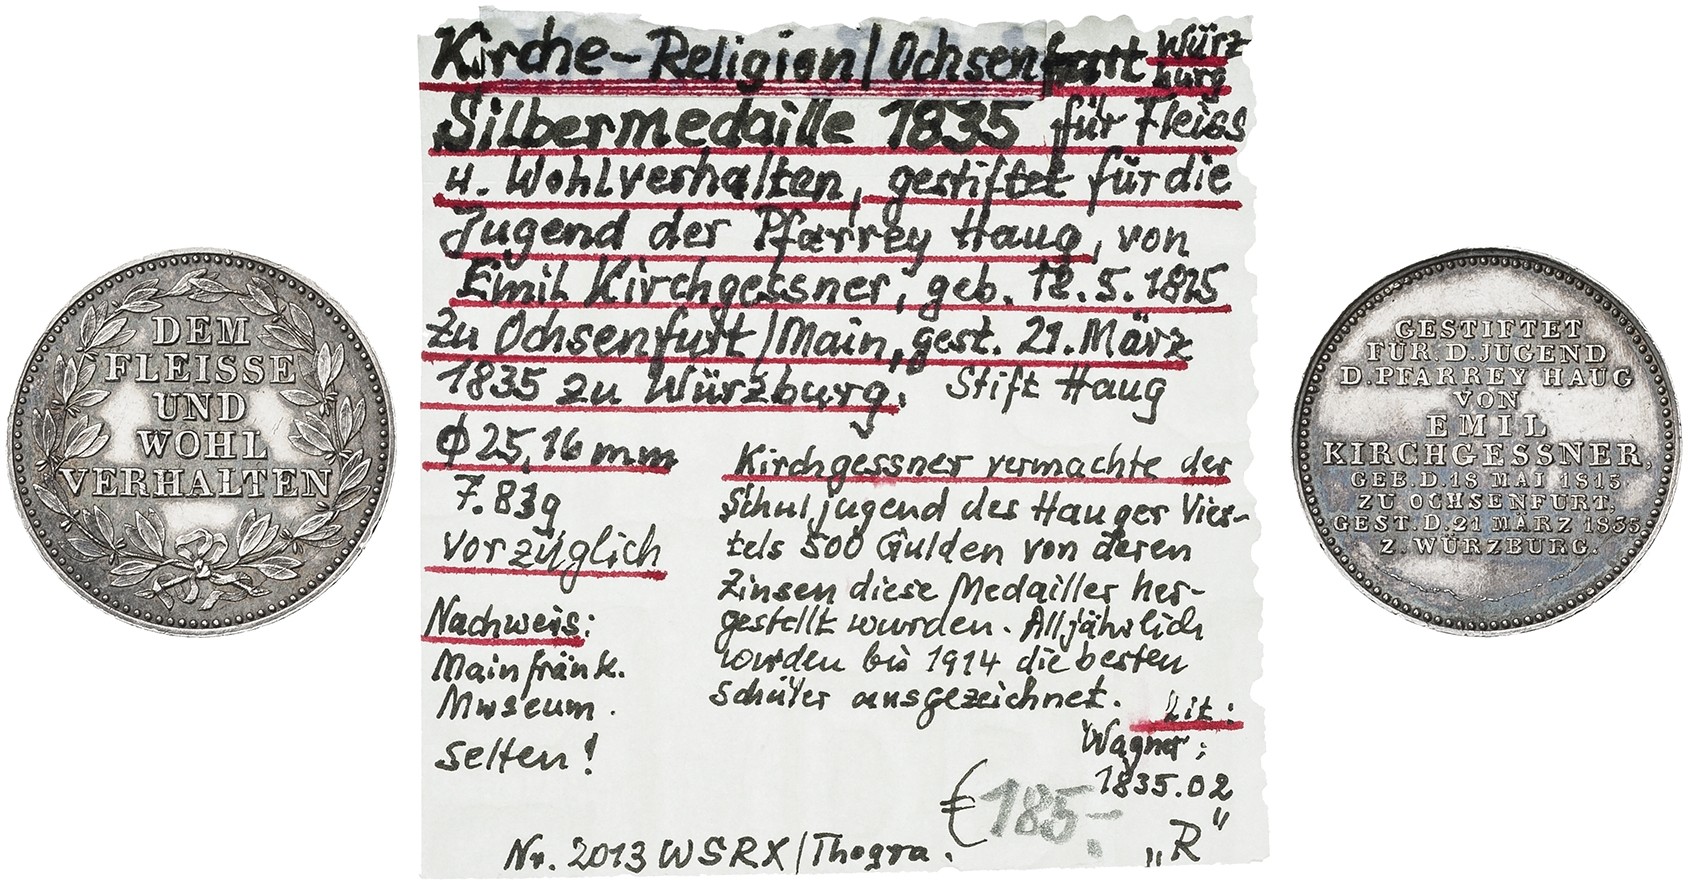 DEM
FLEISSE
UND
WOHL
VERHALTEN
Kirche-Religion/Ochsenfurt Würz
burg
Silbermedaille 1835 für Fleiss
u. Wohlverhalten, gestiftet für die
Jugend der Pfarrey Haug, von
Emil Kirchgessner, geb. 18.5.1815
zu Ochsenfurt/Main, gest. 21. März
1835 zu Würzburg. Stift Haug
Ø 25,16 mm
7.83g
vorzüglich
Nachweis:
Mainfränk.
Museum.
selten!
Kirchgessner vermachte der
Schuljugend des Hauger Vier-
tels 500 Gulden von deren
Zinsen diese Medaillen her-
gestellt wurden. Alljährlich
wurden bis 1914 die besten
Schüler ausgezeichnet.
Lit:
Wagner:
1835.02
"R"
€ 185,-
Nr. 2013 WSRX/Thogra.
GESTIFTET
FÜR D. JUGEND
D. PFARREY HAUG
VON
EMIL
KIRCHGESSNER,
GEB. D. 18 MAI 1815.
ZU OCHSENFURT,
GEST. D. 21 MÄRZ 1835
Z. WÜRZBURG.